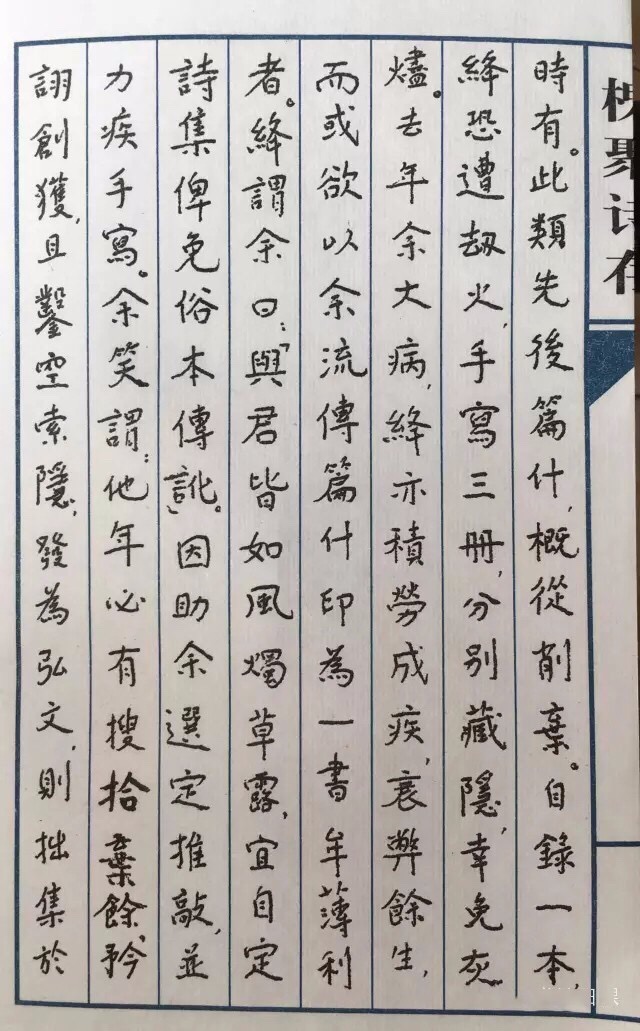 槐聚诗存
時有。此類先後篇什，概從削棄。自錄一本，
絳恐遭劫火，手寫三册，分别藏隱，幸免灰
燼。去年余大病，絳亦積勞成疾，衰弊餘生，
而或欲以余流傳篇什印為一書牟薄利
者。絳謂余曰：「與君皆如風燭草露，宜自定
詩集俾免俗本傳訛。」因助余選定推敲，並
力疾手寫。余笑謂：他年必有搜拾棄餘，矜
詡創獲，且鑿空索隱，發為弘文，則拙集於